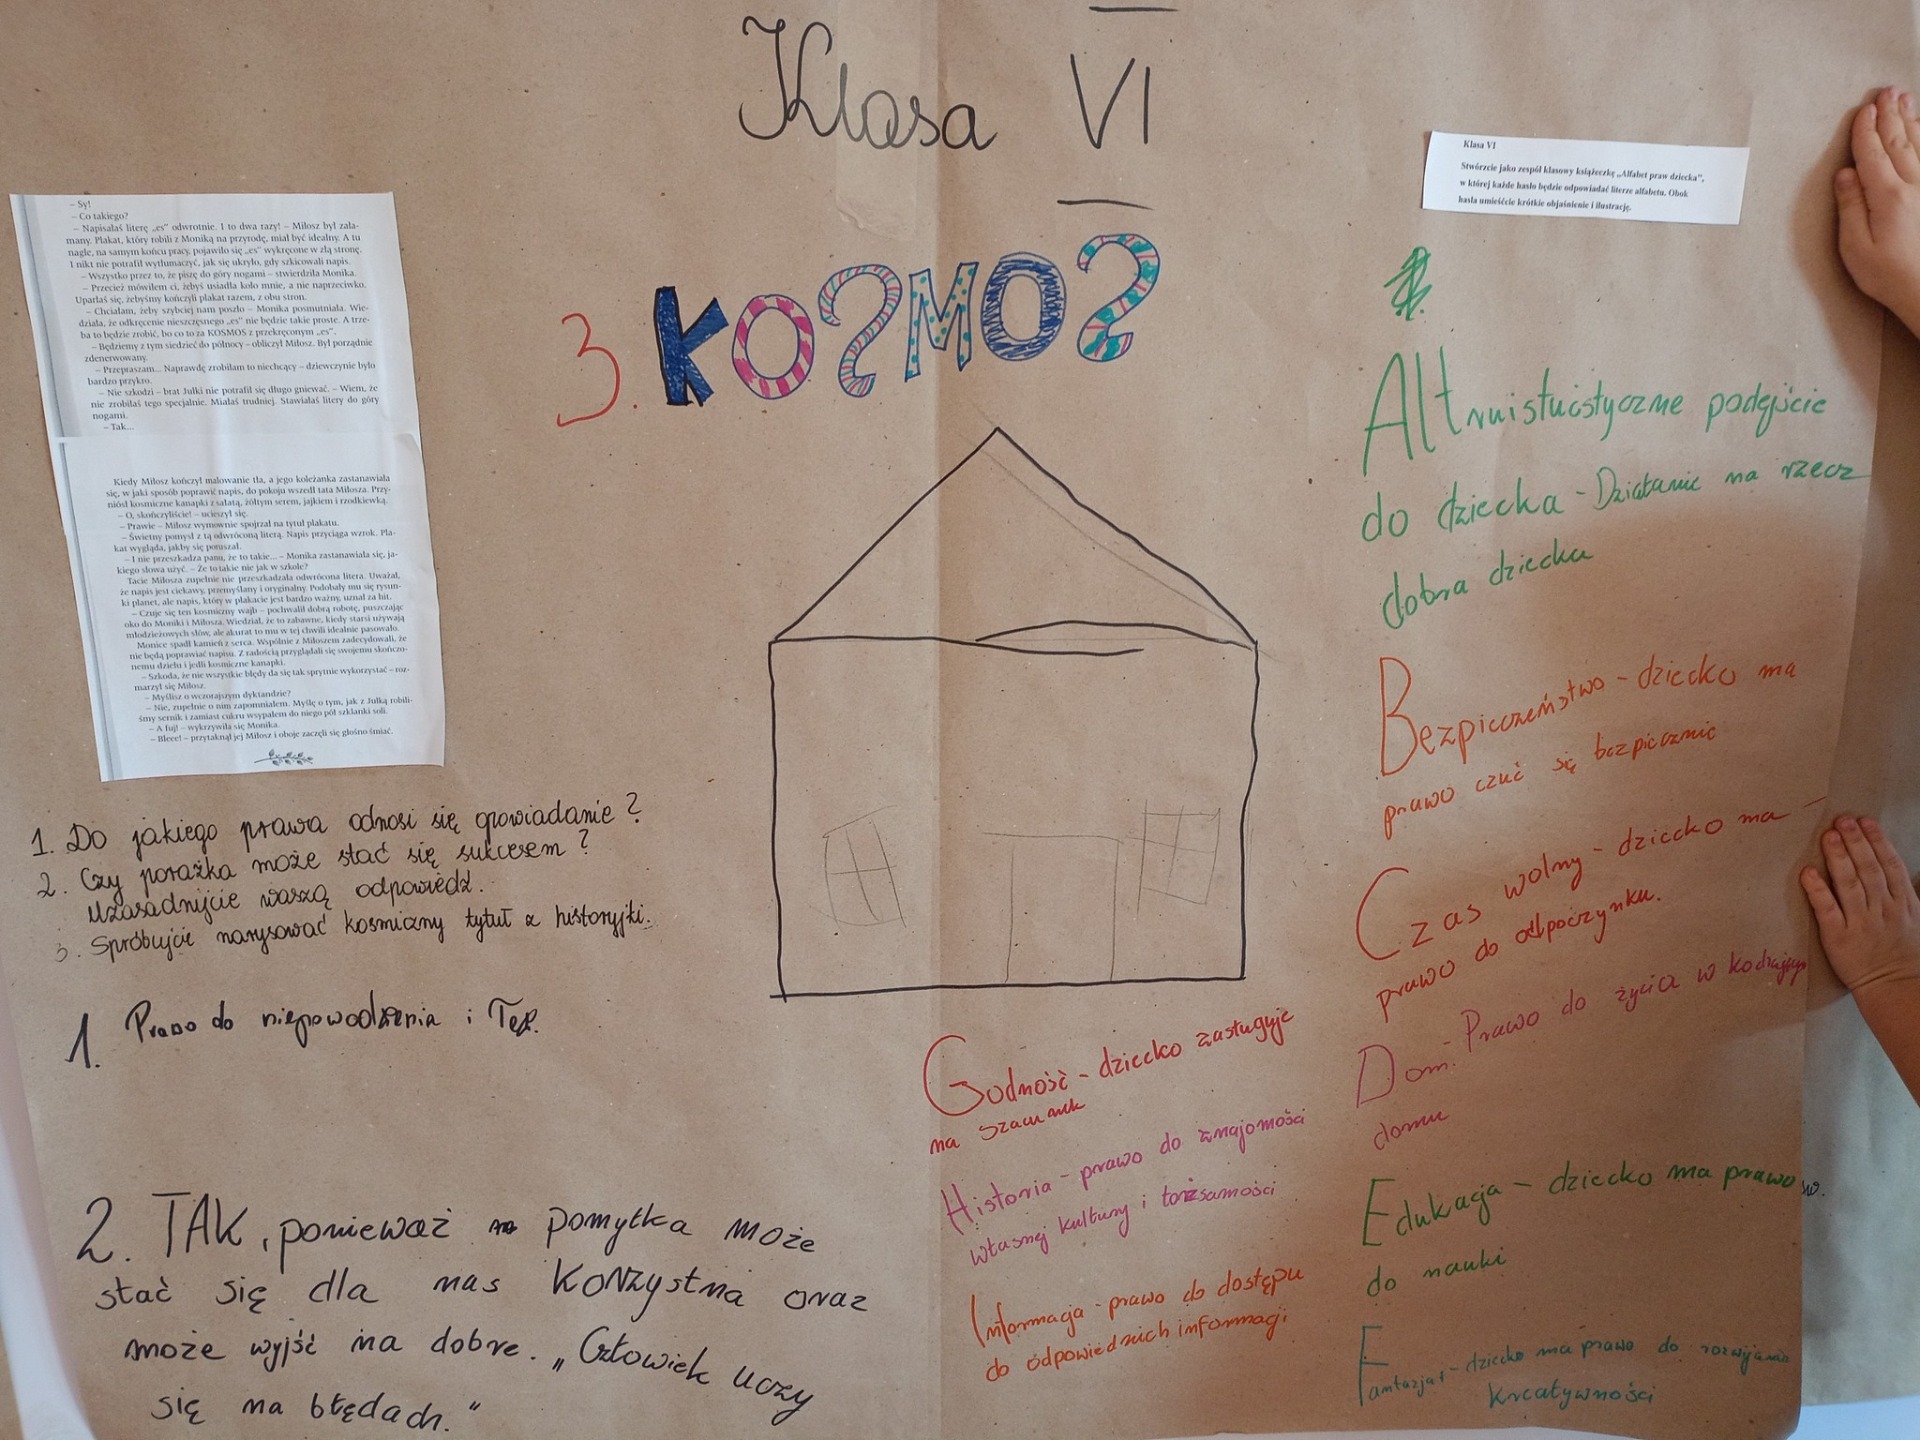 Klasa VI
– Sy!
– Co takiego?
– Napisałaś literę „es” odwrotnie. I to dwa razy! – Miłosz był zała-
many. Plakat, który robili z Moniką na przyrodę, miał być idealny. A tu
nagle, na samym końcu pracy, pojawiło się „es” wykręcone w złą stronę.
I nikt nie potrafił wytłumaczyć, jak się ukryło, gdy szkicowali napis.
– Wszystko przez to, że piszę do góry nogami – stwierdziła Monika.
– Przecież mówiłem ci, żebyś usiadła koło mnie, a nie naprzeciwko.
Uparłaś się, żebyśmy kończyli plakat razem, z obu stron.
– Chciałam, żeby szybciej nam poszło – Monika posmutniała. Wie-
działa, że odkręcenie nieszczęsnego „es” nie będzie takie proste. A trze-
ba to będzie zrobić, bo co to za KOSMOS z przekręconym „es”.
– Będziemy z tym siedzieć do północy – obliczył Miłosz. Był porządnie
zdenerwowany.
– Przepraszam... Naprawdę zrobiłam to niechcący – dziewczynie było
bardzo przykro.
– Nie szkodzi – brat Julki nie potrafił się długo gniewać. – Wiem, że
nie zrobiłaś tego specjalnie. Miałaś trudniej. Stawiałaś litery do góry
nogami.
– Tak...
Kiedy Miłosz kończył malowanie tła, a jego koleżanka zastanawiała
się, w jaki sposób poprawić napis, do pokoju wszedł tata Miłosza. Przy-
niósł kosmiczne kanapki z sałatą, żółtym serem, jajkiem i rzodkiewką.
– O, skończyliście! – ucieszył się.
– Prawie – Miłosz wymownie spojrzał na tytuł plakatu.
– Świetny pomysł z tą odwróconą literą. Napis przyciąga wzrok. Pla-
kat wygląda, jakby się poruszał.
– I nie przeszkadza panu, że to takie... – Monika zastanawiała się, ja-
kiego słowa użyć. – Że to takie nie jak w szkole?
Tacie Miłosza zupełnie nie przeszkadzała odwrócona litera. Uważał,
że napis jest ciekawy, przemyślany i oryginalny. Podobały mu się rysun-
ki planet, ale napis, który w plakacie jest bardzo ważny, uznał za hit.
– Czuję się ten kosmiczny wajb – pochwalił dobrą robotę, puszczając
oko do Moniki i Miłosza. Wiedział, że to zabawne, kiedy starsi używają
młodzieżowych słów, ale akurat to mu w tej chwili idealnie pasowało.
Monice spadł kamień z serca. Wspólnie z Miłoszem zadecydowali, że
nie będą poprawiać napisu. Z radością przyglądali się swojemu skończo-
nemu dziełu i jedli kosmiczne kanapki.
– Szkoda, że nie wszystkie błędy da się tak sprytnie wykorzystać – roz-
marzył się Miłosz.
– Myślisz o wczorajszym dyktandzie?
– Nie, zupełnie o nim zapomniałem. Myślę o tym, jak z Julką robili-
śmy sernik i zamiast cukru wsypałem do niego pół szklanki soli.
– A fuj! – wykrzywiła się Monika.
– Bleee! – przytaknął jej Miłosz i oboje zaczęli się głośno śmiać.
1. Do jakiego prawa odnosi się opowiadanie?
2. Czy porażka może stać się sukcesem?
Uzasadnijcie waszą odpowiedź.
3. Spróbujcie narysować kosmiczny tytuł z historyjki.
1. Prawo do niepowodzenia i
2. TAK, ponieważ pomyłka może
stać się dla nas korzystna oraz
może wyjść na dobre. „Człowiek uczy
się na błędach."
3. KOSMOS
Klasa VI
Stwórzcie jako zespół klasowy książeczkę „Alfabet praw dziecka”,
w której każde hasło będzie odpowiadać literze alfabetu. Obok
hasła umieśćcie krótkie objaśnienie i ilustrację.
Altruistuistyczne podejście
do dziecka - Działanie na rzecz
dobra dziecka
Bezpieczeństwo - dziecko ma
prawo czuć się bezpiecznie
Czas wolny - dziecko ma
prawo do odpoczynku.
Dom: Prawo do życia w
domu
Edukacja - dziecko ma prawo
do nauki
Fantazja - dziecko ma prawo do rozwijania
kreatywności
Godność - dziecko zasługuje
na szacunek
Historia - prawo do znajomości
własnej kultury i tożsamości
Informacja - prawo do dostępu
do odpowiednich informacji